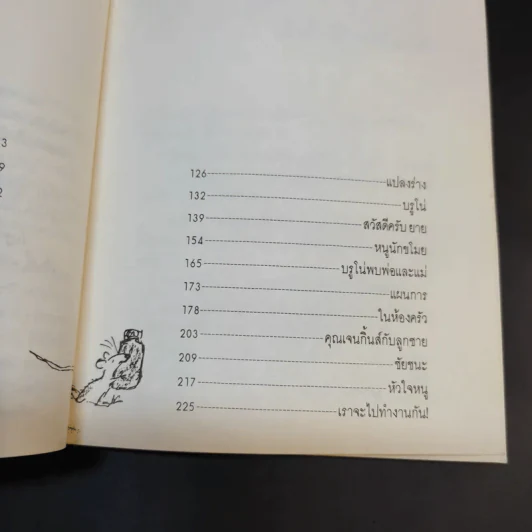 3
9
2
126 แปลงร่าง
132 บรูโน่
139 สวัสดีครับ ยาย
154 หนูนักขโมย
165 บรูโน่พบพ่อและแม่
173 แผนการ
178 ในห้องครัว
203 คุณเจนกิ้นส์กับลูกชาย
209 ชัยชนะ
217 หัวใจหนู
225 เราจะไปทำงานกัน!